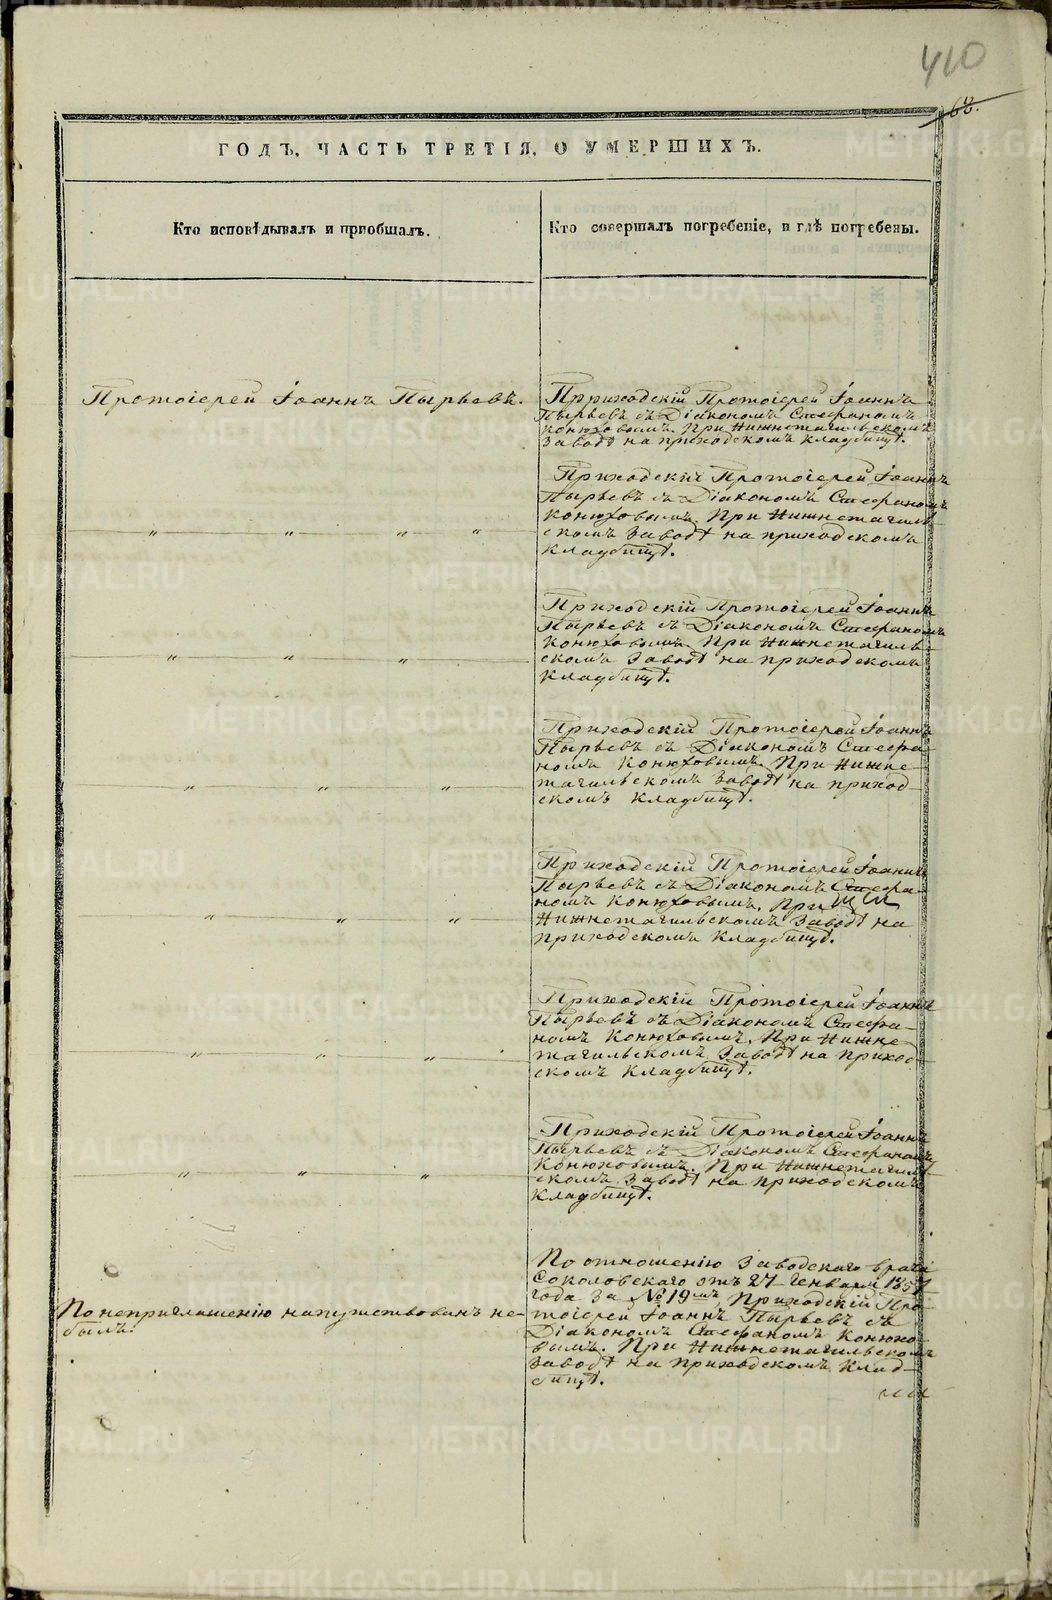 410
68.
ГОДЪ, ЧАСТЬ ТРЕТІЯ, О УМЕРШИХЪ.
Кто исповѣдывалъ и пріобщалъ.
Кто совершалъ погребеніе, и гдѣ погребены.
Протоіерей Іоаннъ Пырьевъ.
Приходскій Протоіерей Іоаннъ
Пырьевъ съ Діакономъ Стефаномъ
Конюховымъ. При Нижнетагильскомъ
Заводѣ на приходскомъ кладбищѣ.
" " " "
Приходскій Протоіерей Іоаннъ
Пырьевъ съ Діакономъ Стефаномъ
Конюховымъ. При Нижнетагиль-
скомъ Заводѣ на приходскомъ
кладбищѣ.
" " "
Приходскій Протоіерей Іоаннъ
Пырьевъ съ Діакономъ Стефаномъ
Конюховымъ. При Нижнетагиль-
скомъ Заводѣ на приходскомъ
кладбищѣ.
" " "
Приходскій Протоіерей Іоаннъ
Пырьевъ съ Діакономъ Стефа-
номъ Конюховымъ. При Нижне-
тагильскомъ Заводѣ на приход-
скомъ кладбищѣ.
" " "
Приходскій Протоіерей Іоаннъ
Пырьевъ съ Діакономъ Стефа-
номъ Конюховымъ. При
Нижнетагильскомъ Заводѣ на
приходскомъ кладбищѣ.
" " "
Приходскій Протоіерей Іоаннъ
Пырьевъ съ Діакономъ Стефа-
номъ Конюховымъ. При Нижне-
тагильскомъ Заводѣ на приход-
скомъ кладбищѣ.
" " "
Приходскій Протоіерей Іоаннъ
Пырьевъ съ Діакономъ Стефаномъ
Конюховымъ. При Нижнетагиль-
скомъ Заводѣ на приходскомъ
кладбищѣ.
По неприглашенію напутствованъ не-
былъ.
По отношенію Заводскаго врача
Соколовскаго отъ 27 Генваря 1857
года за № 19мъ Приходскій Про-
тоіерей Іоаннъ Пырьевъ съ
Діакономъ Стефаномъ Конюхо-
вымъ. При Нижнетагильскомъ
Заводѣ на приходскомъ клад-
бищѣ.
METRIKI.GASO-URAL.RU